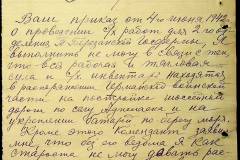 Ваш приказ от 4го июня 1942
о проведении с/х работ для 2го от-
деления
выполнить не могу в связи с тем,
что вся рабочая и тягловая
сила и с/х инвентарь находятся
в распоряжении Германской воинской
части на постройке шоссейной
дороги по селу и на
укреплении батарей по берегу моря.
Кроме этого Комендант заявил
мне, что без его ведома Я как
Староста не могу давать рас-